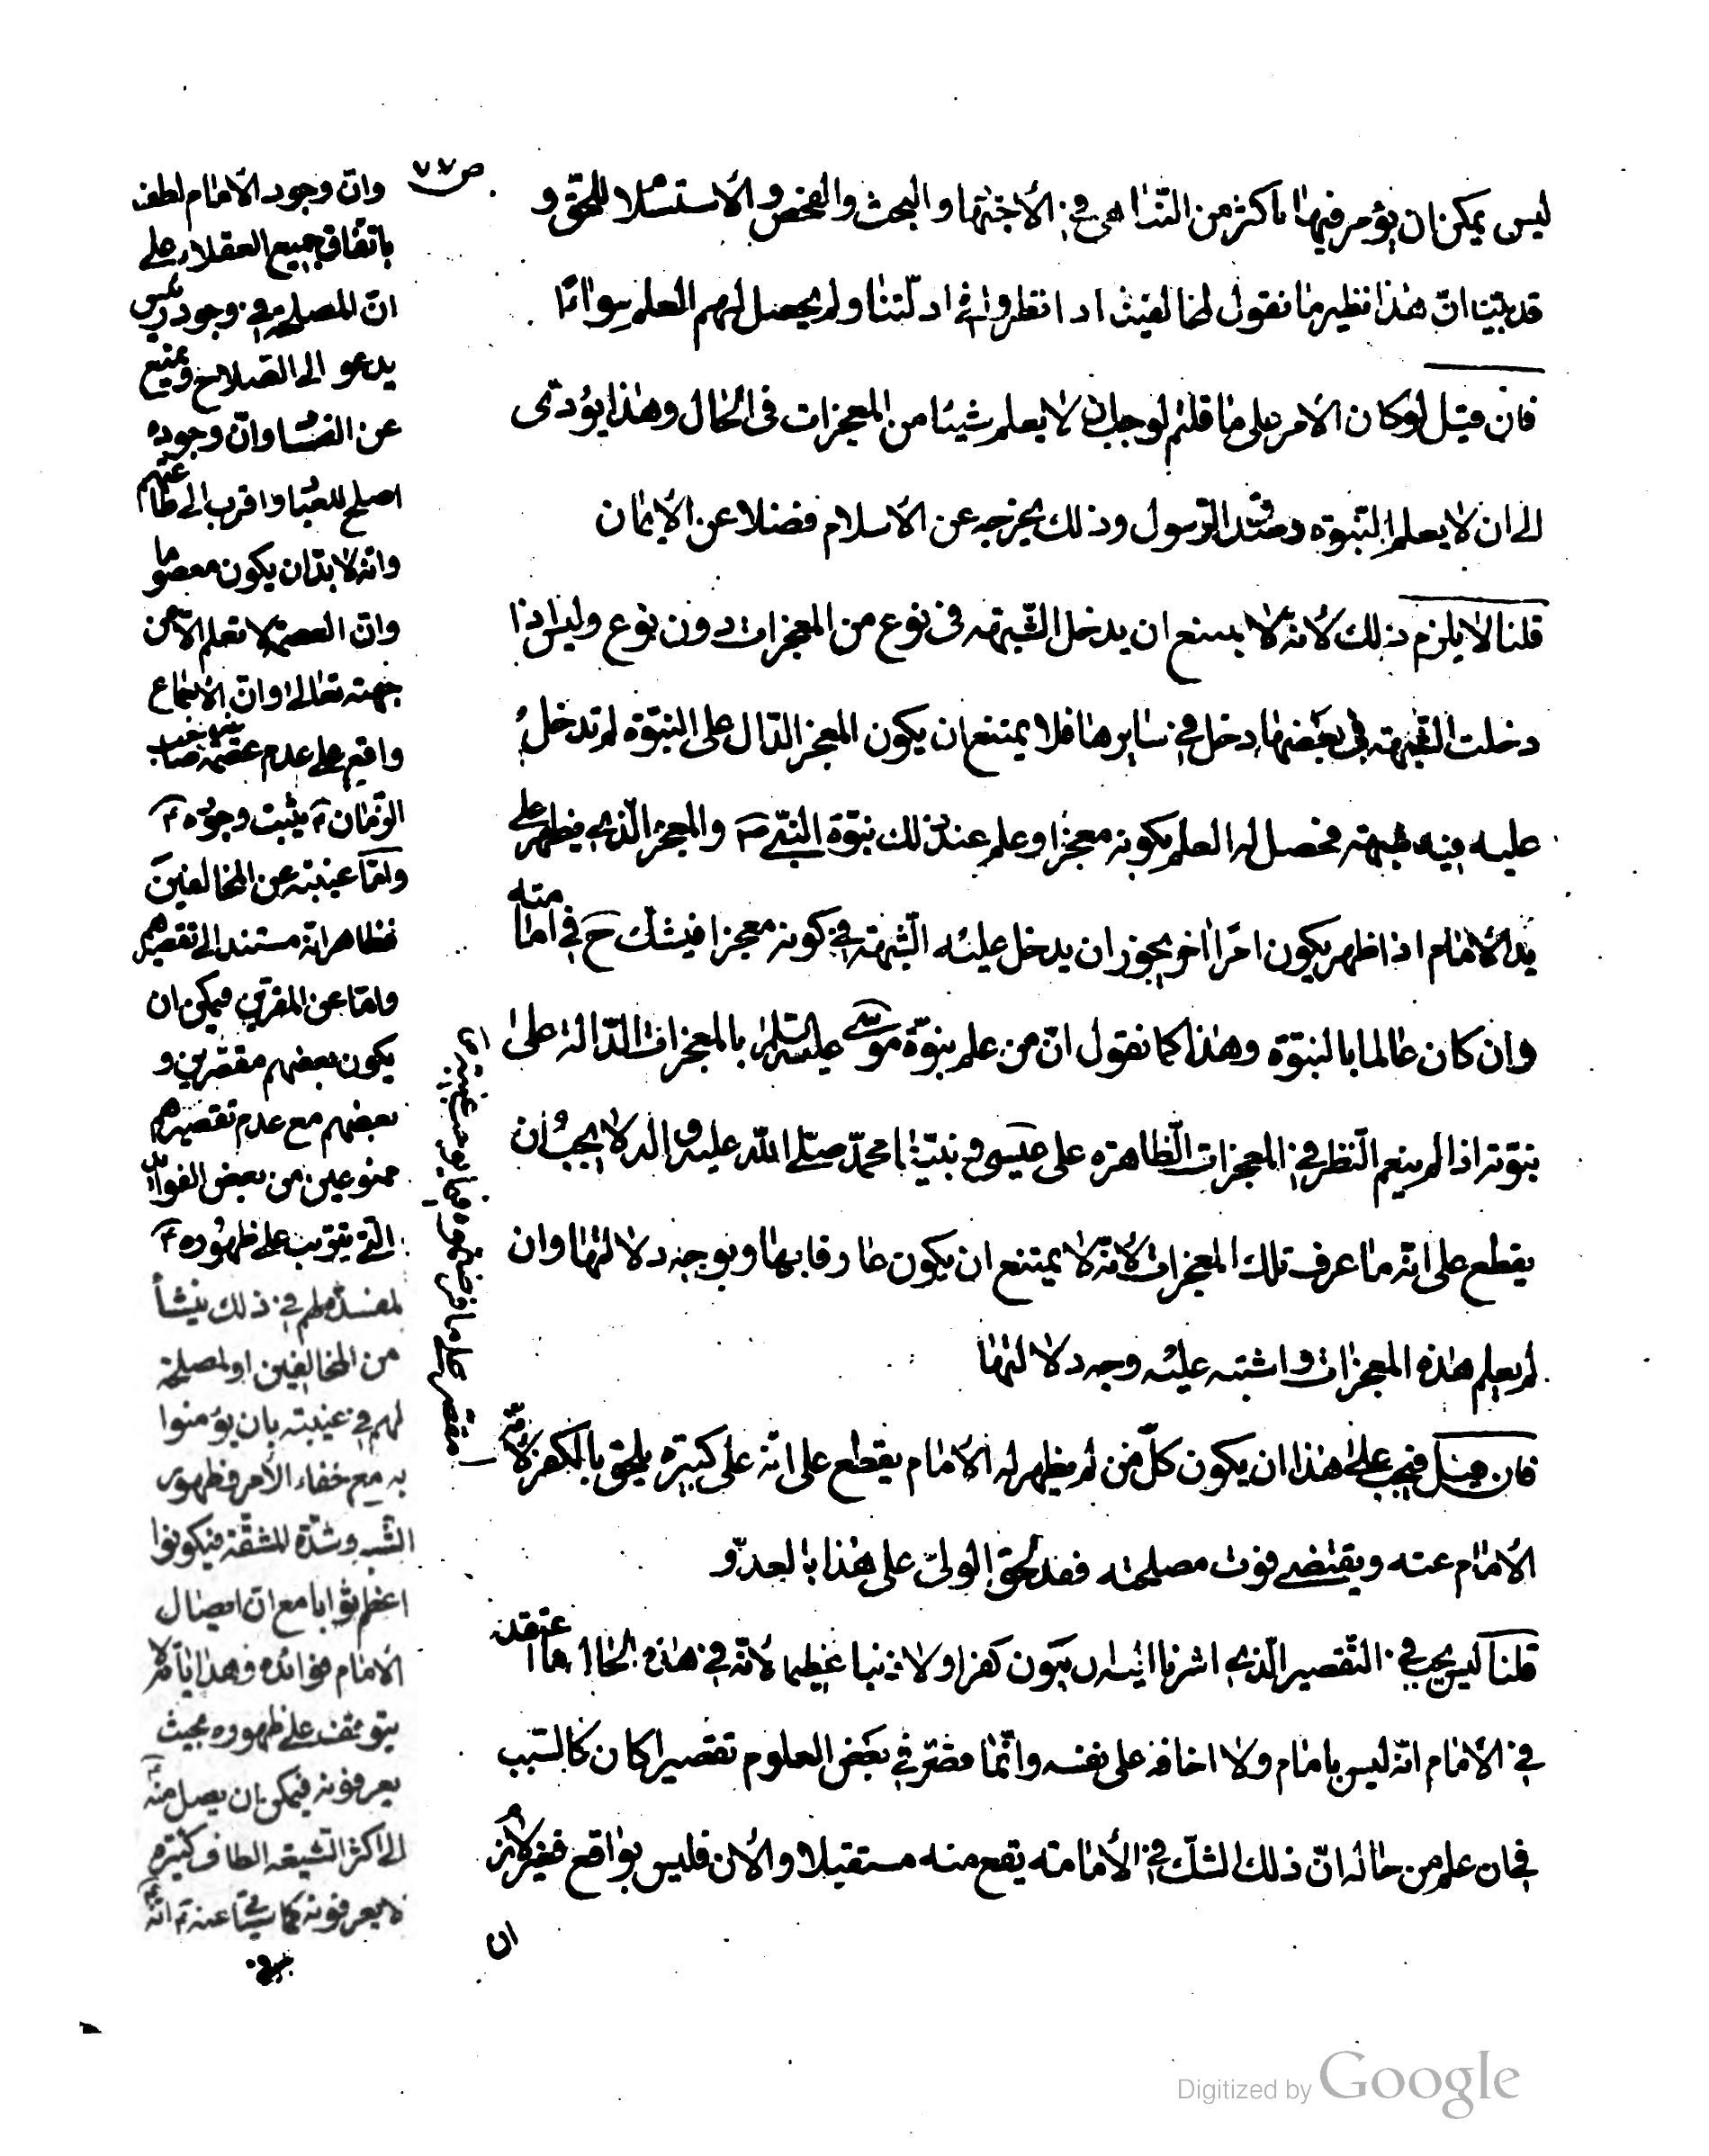 ص ٧٧
ليس يمكن ان يؤمر فيها باكثر من التناهى فى الاجتهاد والبحث والفحص والاستسلام للحق و
قد بيّنا انّ هذا نظير ما نقول لمخالفينا اذا نظروا فى ادلّتنا ولم يحصل لهم العلم سواء
فان قيل لو كان الامر على ما قلتم لوجب ان لا يعلم شيئا من المعجزات فى الحال وهذا يؤدّى
الى ان لا يعلم النبوّة وصدق الرسول وذلك يخرجه عن الاسلام فضلا عن الايمان
قلنا لا يلزم ذلك لانّه لا يمتنع ان يدخل الشّبهة فى نوع من المعجزات دون نوع وليس اذا
دخلت الشّبهة فى بعضها دخل فى سايرها فلا يمتنع ان يكون المعجز الدّال على النبوّة لم تدخل
عليه فيه شبهة فحصل له العلم بكونه معجزا وعلم عند ذلك نبوّة النبّى ص والمعجز الّذى يظهر على
يد الامام اذا ظهر يكون امرا اخر يجوز ان يدخل عليه الشّبهة فى كونه معجزا فيشكّ ح فى امامته
وان كان عالما بالنبوّة وهذا كما نقول انّ من علم نبوّة موسى عليه السّلام بالمعجزات الدّالة على
نبوّته اذا لم ينعم النّظر فى المعجزات الظّاهرة على عيسى ونبيّنا محمّد صلّى الله عليه واله لا يجب ان
يقطع على انّه ما عرف تلك المعجزات لانّه لا يمتنع ان يكون عارفا بها وبوجه دلالتها وان
لم يعلم هذه المعجزات واشتبه عليه وجه دلالتها
فان قيل فيجب على هذا ان يكون كلّ من لم يظهر له الامام يقطع على انّه على كبيرة يلحق بالكفر لانّه
الامام عنه ويقتضى فوت مصلحته فقد لحق الولىّ على هذا بالعدوّ
قلنا ليس يجب فى التّقصير الّذى اشرنا اليه ان يكون كفرا ولا ذنبا عظيما لانّه فى هذه الحال ما اعتقد
فى الامام انّه ليس بامام ولا اخافه على نفسه وانّما قصّر فى بعض العلوم تقصيرا كان كالسّبب
فى ان علم من حاله انّ ذلك الشكّ فى الامامة يقع منه مستقبلا والان فليس بواقع فغير لازم
ان
وانّ وجود الامام لطف
باتّفاق جميع العقلاء على
انّ المصلحة فى وجود رئيس
يدعو الى الصّلاح ويمنع
عن الفساد وانّ وجوده
اصلح للعباد واقرب الى طاعتهم
وانّه لا بدّ ان يكون معصوما
وانّ العصمة لا تعلم الّا من
جهته تعالى وانّ الاجماع
واقع على عدم عصمة غير صاحب
الزّمان ع يثبت وجوده ع
وامّا غيبته عن المخالفين
فظاهر انّه مستند الى تقصيرهم
وامّا عن المقرّين فيمكن ان
يكون بعضهم مقصّرين و
بعضهم مع عدم تقصيرهم
ممنوعين من بعض الفوائد
الّتى يترتب على ظهوره ع
لمفسدة لهم فى ذلك ينشأ
من المخالفين او لمصلحة
لهم فى غيبته بان يؤمنوا
به مع خفاء الامر وظهور
الشّبه وشدّة المشقّة فيكونوا
اعظم ثوابا مع انّ ايصال
الامام فوائده وهداياته لا
يتوقف على ظهوره بحيث
يعرفونه فيمكن ان يصل منه ع
الى اكثر الشّيعة الطاف كثيرة
لا يعرفونه كما سيأتى عنه ع انّه